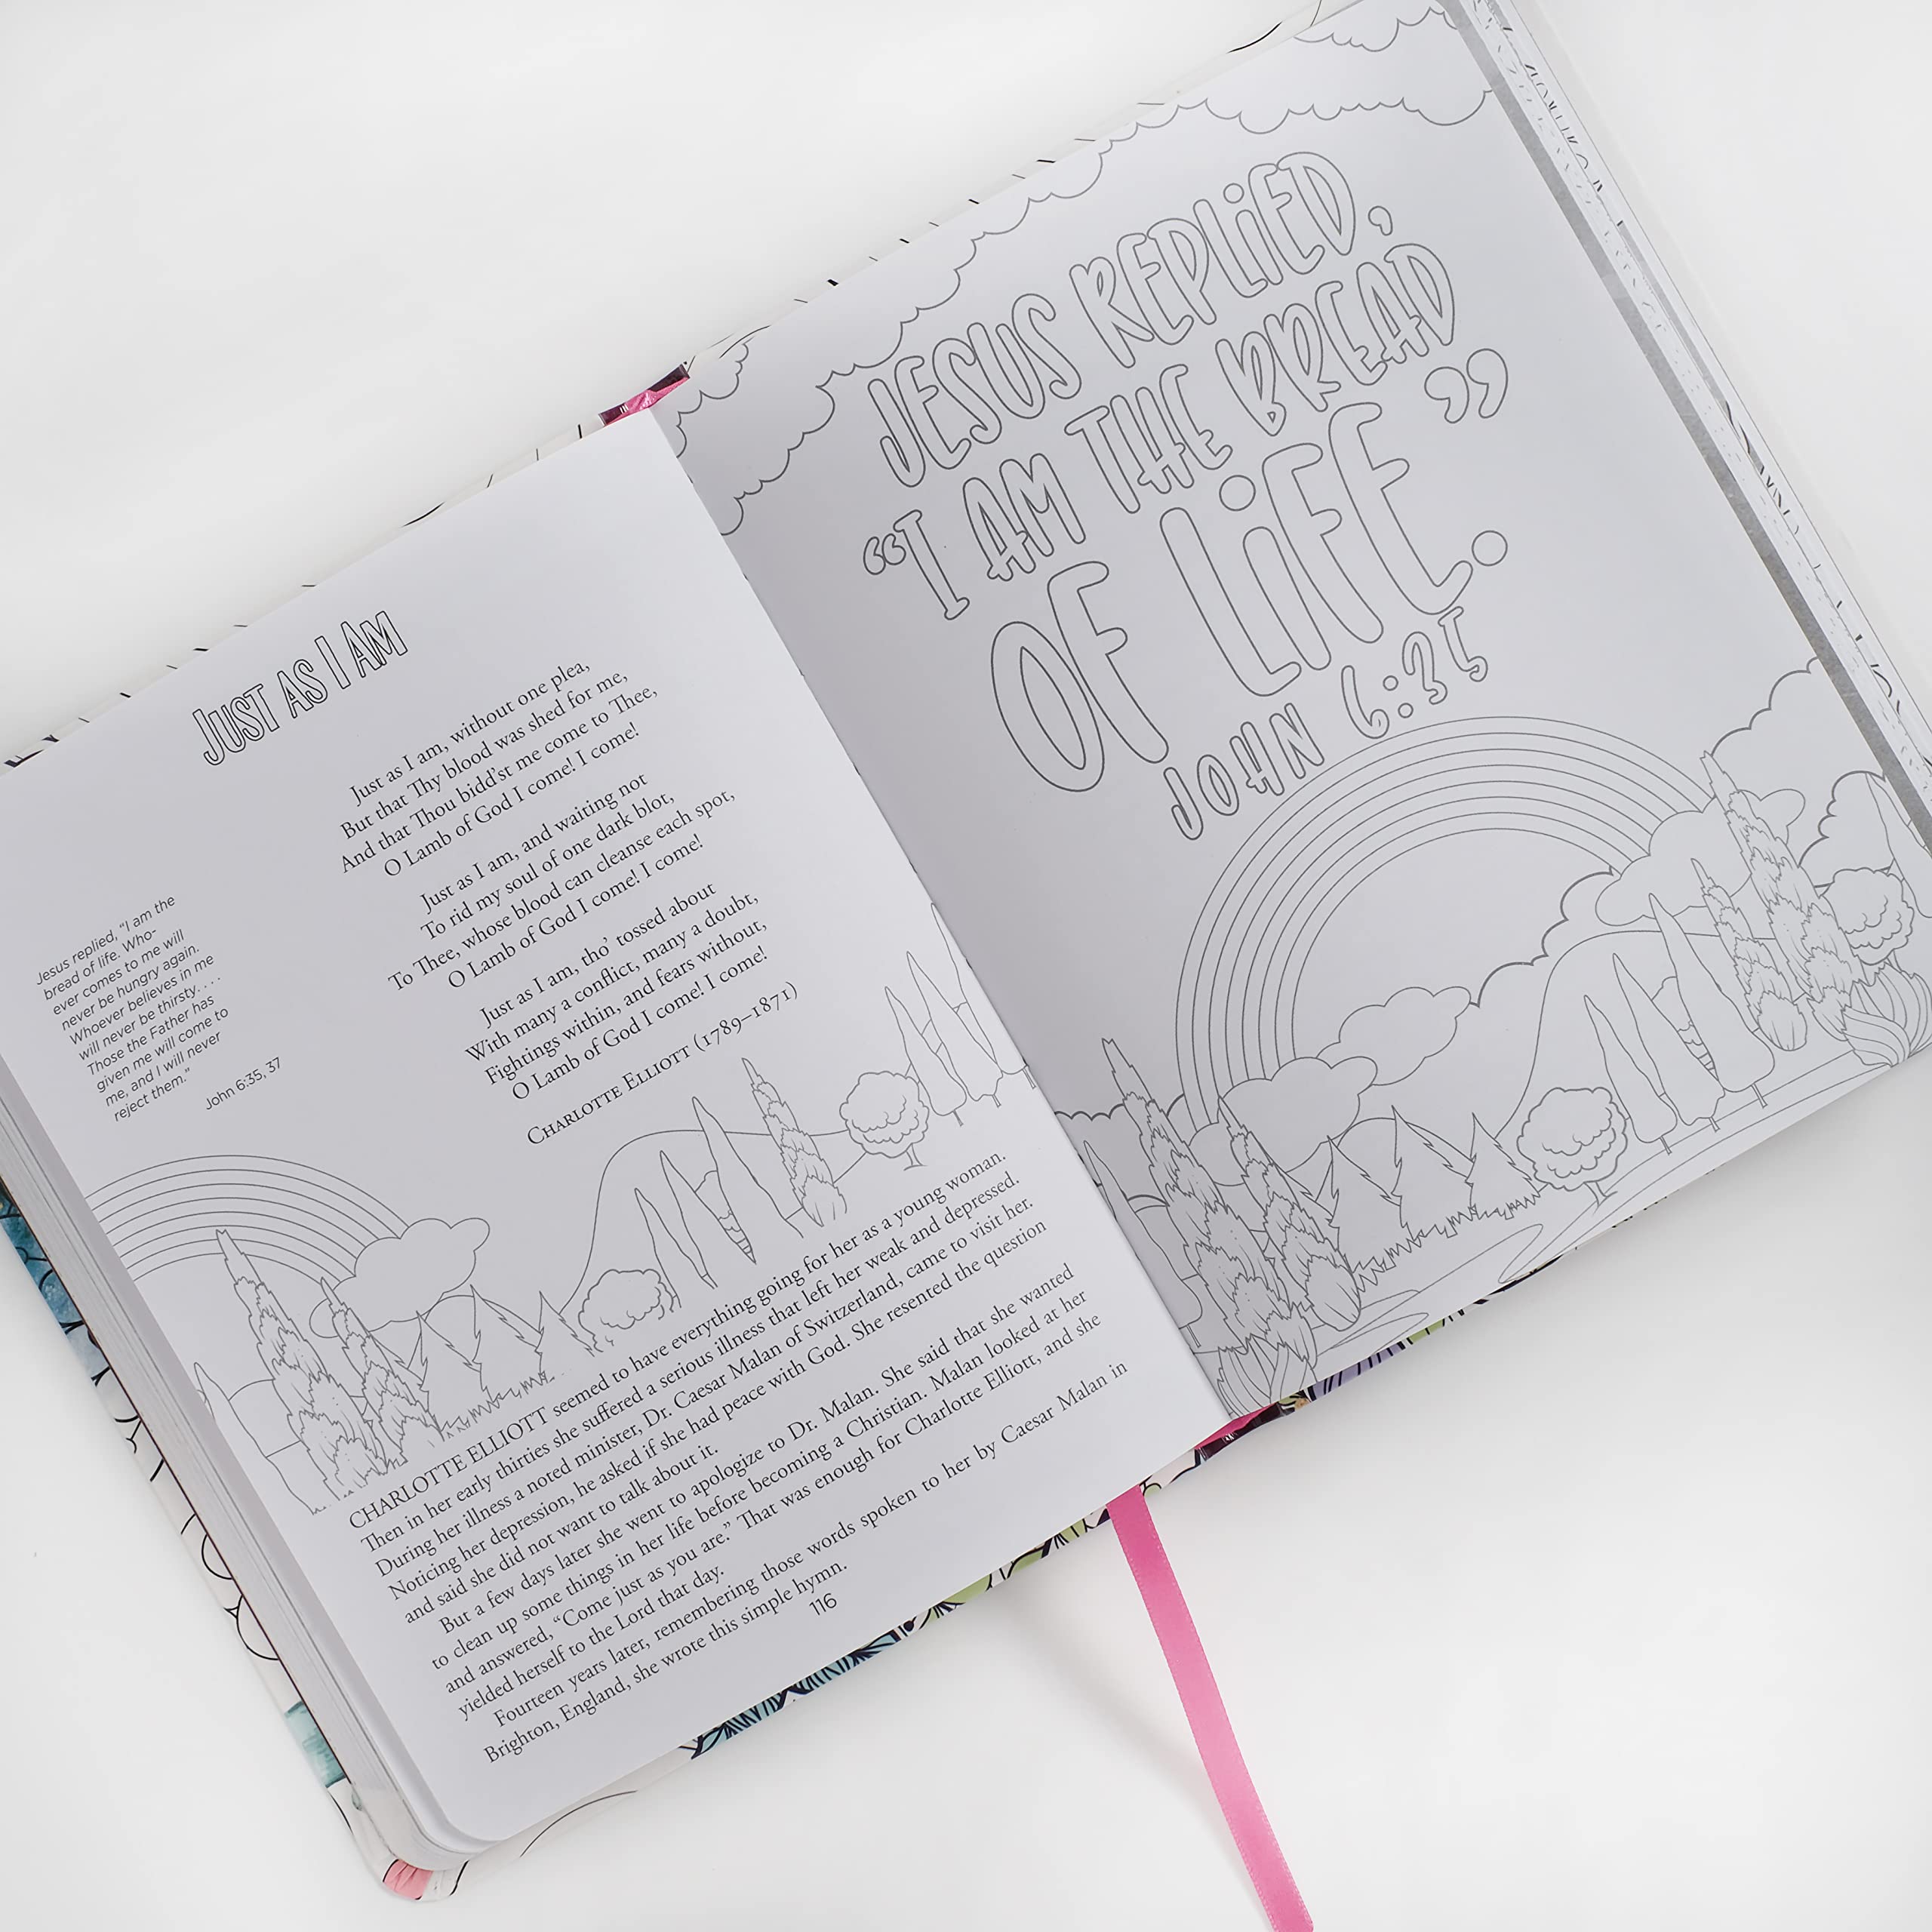 JUST AS I AM
Just as I am, without one plea,
But that Thy blood was shed for me,
And that Thou bidd'st me come to Thee,
O Lamb of God I come! I come!
Just as I am, and waiting not
To rid my soul of one dark blot,
To Thee, whose blood can cleanse each spot,
O Lamb of God I come! I come!
Just as I am, tho' tossed about
With many a conflict, many a doubt,
Fightings within, and fears without,
O Lamb of God I come! I come!
CHARLOTTE ELLIOTT (1789–1871)
Jesus replied, "I am the
bread of life. Who-
ever comes to me will
never be hungry again.
Whoever believes in me
will never be thirsty. . . .
Those the Father has
given me will come to
me, and I will never
reject them."
John 6:35, 37
CHARLOTTE ELLIOTT seemed to have everything going for her as a young woman.
Then in her early thirties she suffered a serious illness that left her weak and depressed.
During her illness a noted minister, Dr. Caesar Malan of Switzerland, came to visit her.
Noticing her depression, he asked if she had peace with God. She resented the question
and said she did not want to talk about it.
But a few days later she went to apologize to Dr. Malan. She said that she wanted
to clean up some things in her life before becoming a Christian. Malan looked at her
and answered, "Come just as you are." That was enough for Charlotte Elliott, and she
yielded herself to the Lord that day.
Fourteen years later, remembering those words spoken to her by Caesar Malan in
Brighton, England, she wrote this simple hymn.
116
JESUS REPLiED,
"I AM THE BREAD
OF LiFE."
JOHN 6:35